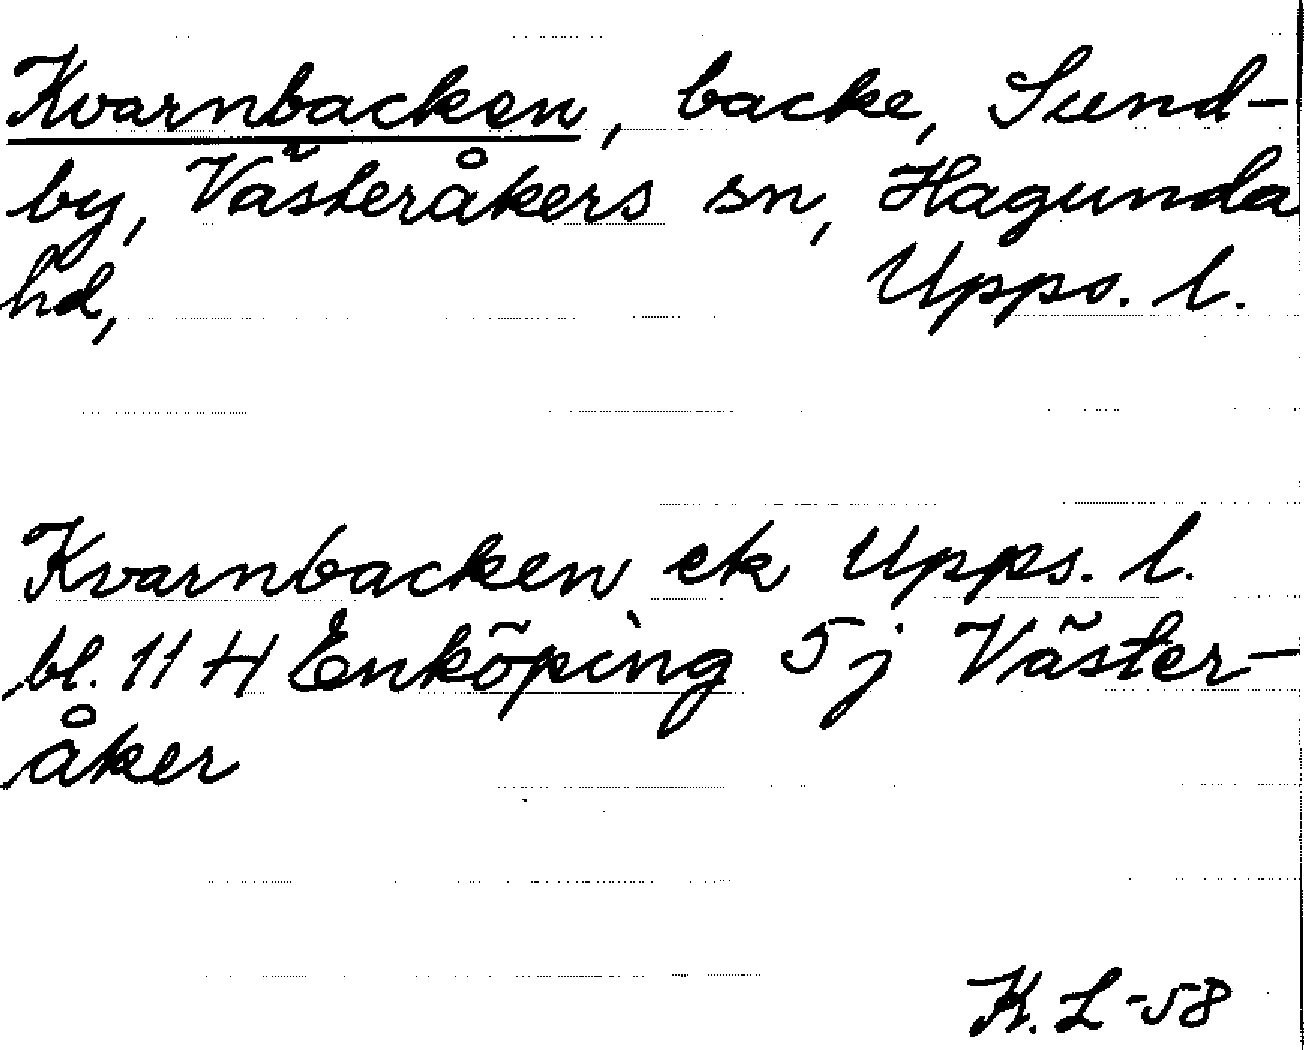 Kvarnbacken, backe, Sund-
by, Västeråkers sn, Hagunda
hd, Upps. l.
Kvarnbacken ek Upps. l.
bl. 11 H Enköping 5j Väster-
åker
K. L -58